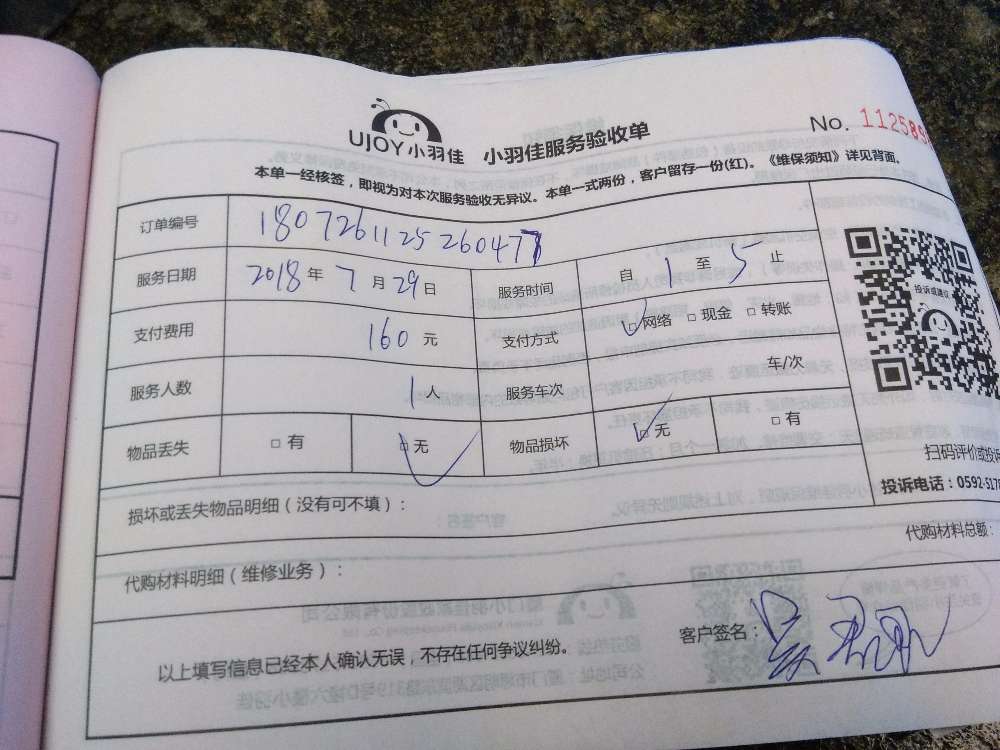 UJOY小羽佳 小羽佳服务验收单 No. 112589
本单一经核签，即视为对本次服务验收无异议。本单一式两份，客户留存一份(红)。《维保须知》详见背面。
订单编号 180726112526047
服务日期 2018年7月29日 服务时间 自1至5止
投诉或建议
支付费用 160元 支付方式 □网络 □现金 □转账
服务人数 1人 服务车次 车/次
物品丢失 □有 □无 物品损坏 □无 □有
扫码评价或投诉
损坏或丢失物品明细（没有可不填）：
投诉电话：0592-517
代购材料明细（维修业务）： 代购材料总额：
以上填写信息已经本人确认无误，不存在任何争议纠纷。 客户签名：